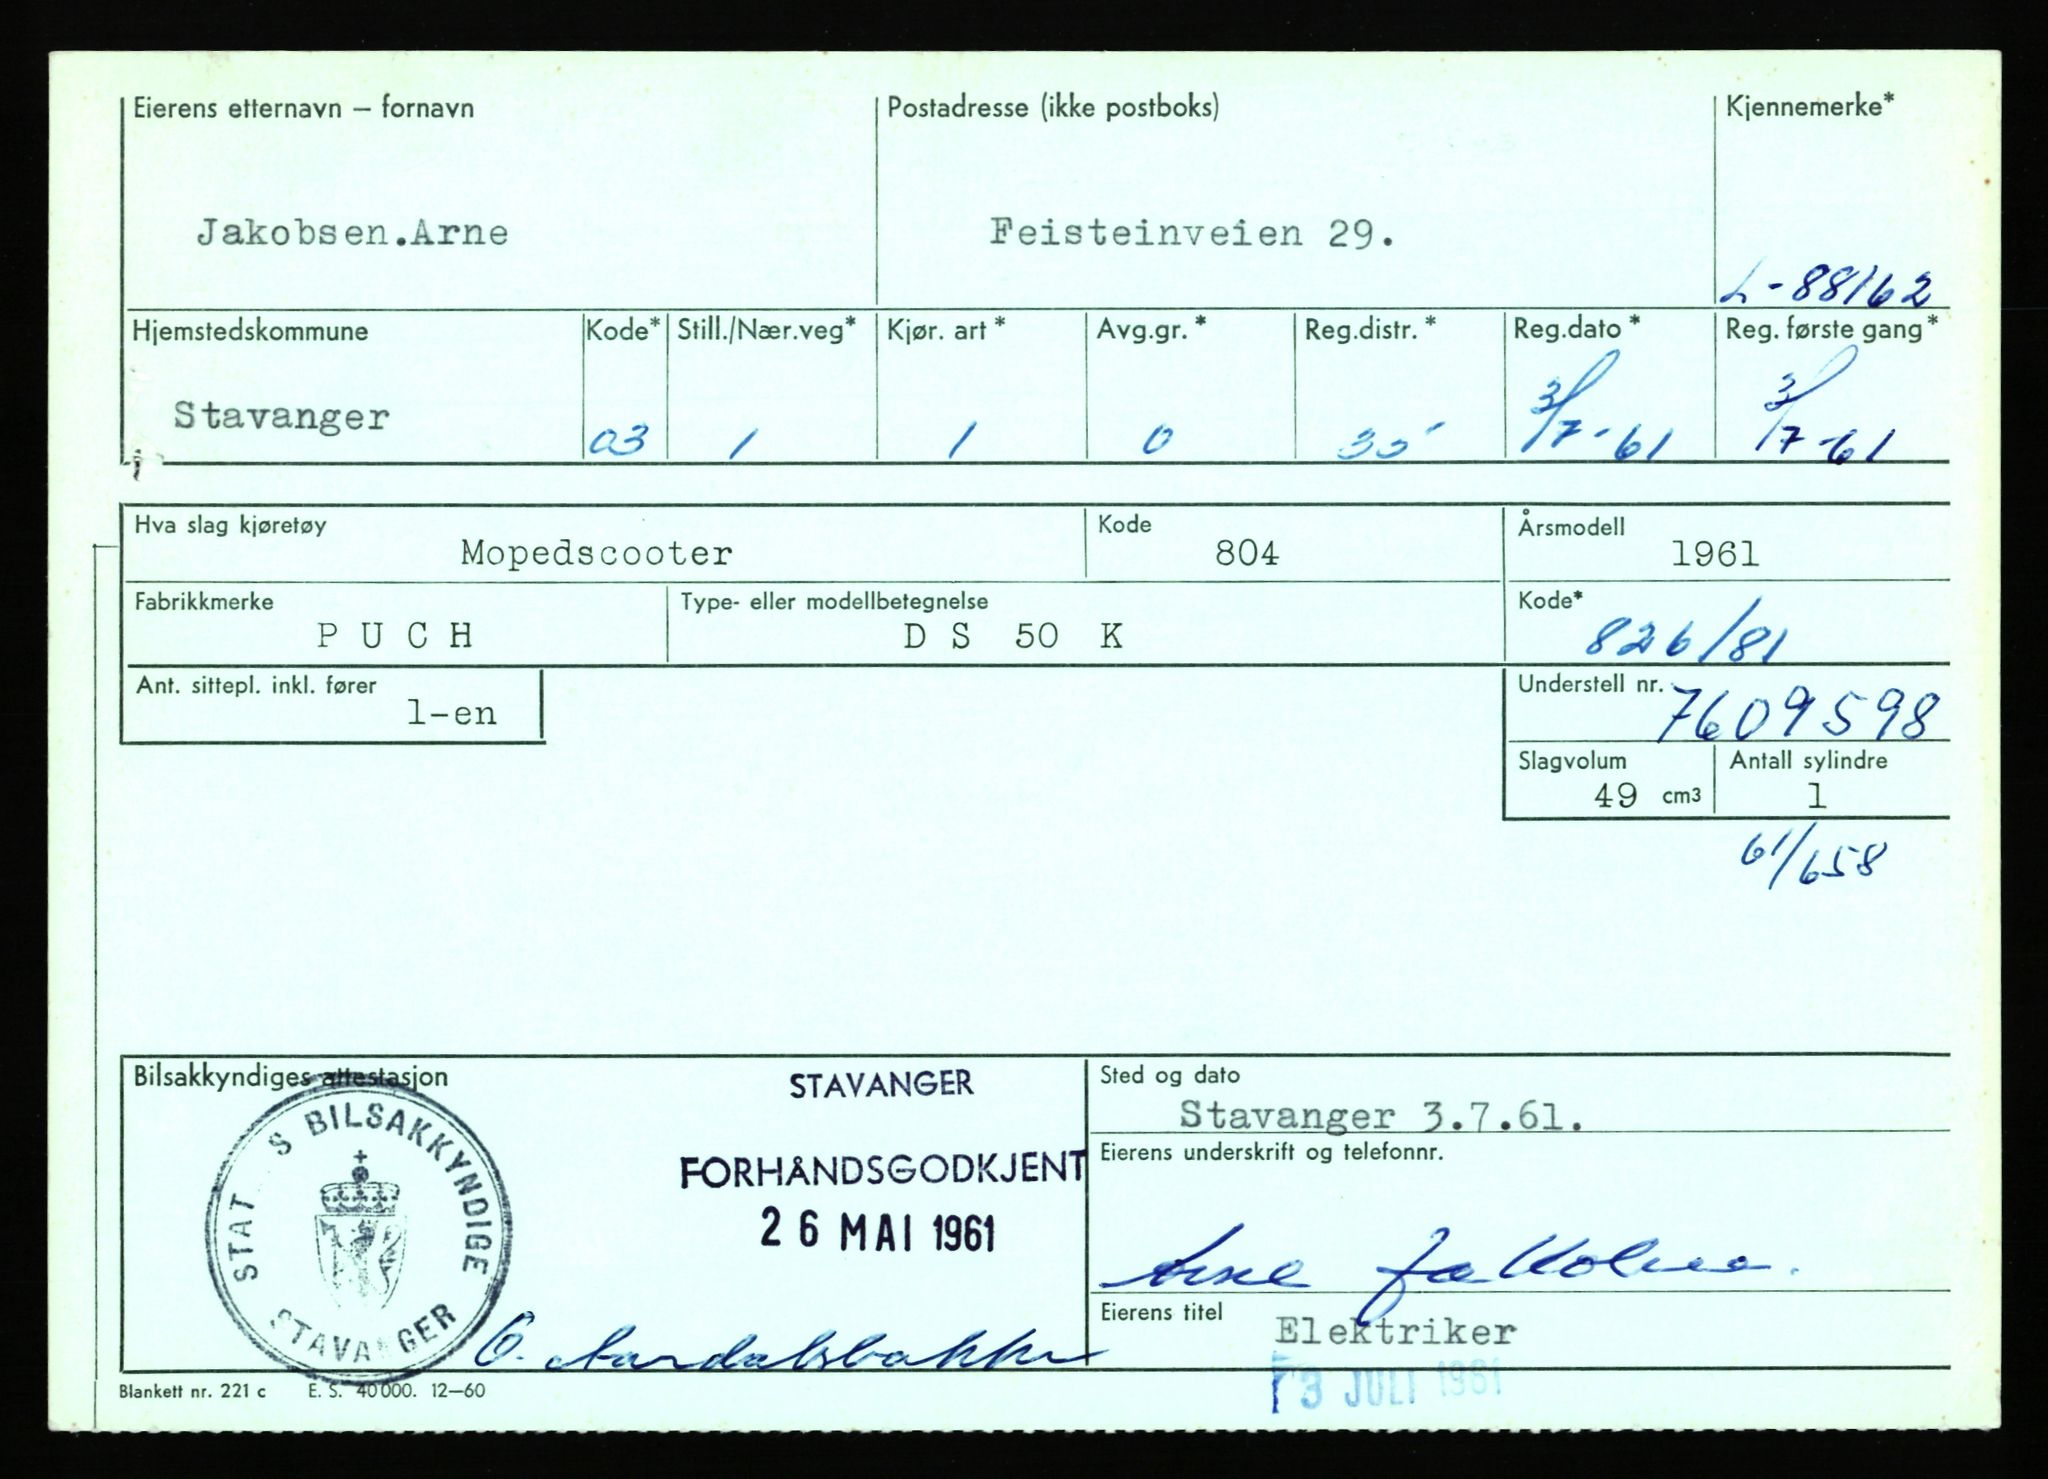 Eierens etternavn – fornavn Postadresse (ikke postboks) Kjennemerke*
Jakobsen.Arne Feisteinveien 29.
L-88162
Hjemstedskommune Kode* Still./Nær.veg* Kjør. art * Avg.gr. * Reg.distr. * Reg.dato * Reg. første gang *
Stavanger 03 1 1 0 35 3/7-61 3/7-61
Hva slag kjøretøy Kode Årsmodell
Mopedscooter 804 1961
Fabrikkmerke Type- eller modellbetegnelse Kode*
P U C H D S 50 K 826/81
Ant. sittepl. inkl. fører Understell nr.
1-en 7609598
Slagvolum Antall sylindre
49 cm3 1
61/658
Bilsakkyndiges attestasjon STAVANGER Sted og dato
Stavanger 3.7.61.
STAT S BILSAKKYNDIGE
STAVANGER
FORHÅNDSGODKJENT
26 MAI 1961
Eierens underskrift og telefonnr.
Arne Jakobsen.
Eierens titel
Elektriker
3 JULI 1961
Blankett nr. 221 c E. S. 40000. 12–60